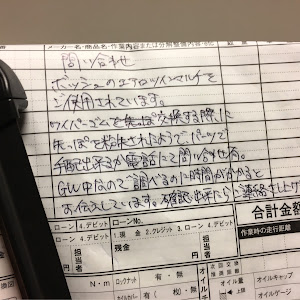 メーカー名・商品名・作業内容または分解整備内容
数量
問い合わせ
ボッシュのエアロツインマルチを
ご使用されています。
ワイパーゴムを先っぽ交換する際に
先っぽを紛失されたようで、パーツで
手配出来るか電話にて問い合せ有。
GW中なので調べるのに時間がかかると
お伝えしています。確認出来たらご連絡さしあげ
ローン 4.デビット ローンNo.
合計金額
ローン 4.デビット 1.現金 2.クレジット 3.ローン 4.デビット
作業時の走行距離
円 残金 円
担当者 担当者
N・m ロックナット 有・無 オイル 推奨量 オイルキャップ
有・(税)・無 上限 オイルゲージ